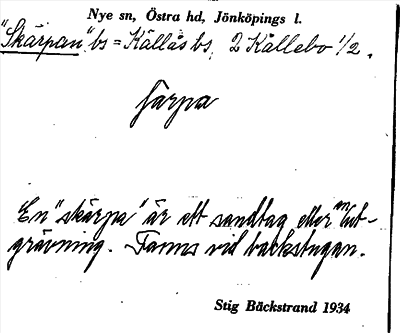 Nye sn, Östra hd, Jönköpings l.
"Skärpan" bs = Källås bs, 2 Källebo 1/2.
särpa
En "skärpa" är ett sandtag eller en ut-
grävning. Fanns vid backstugan.
Stig Bäckstrand 1934